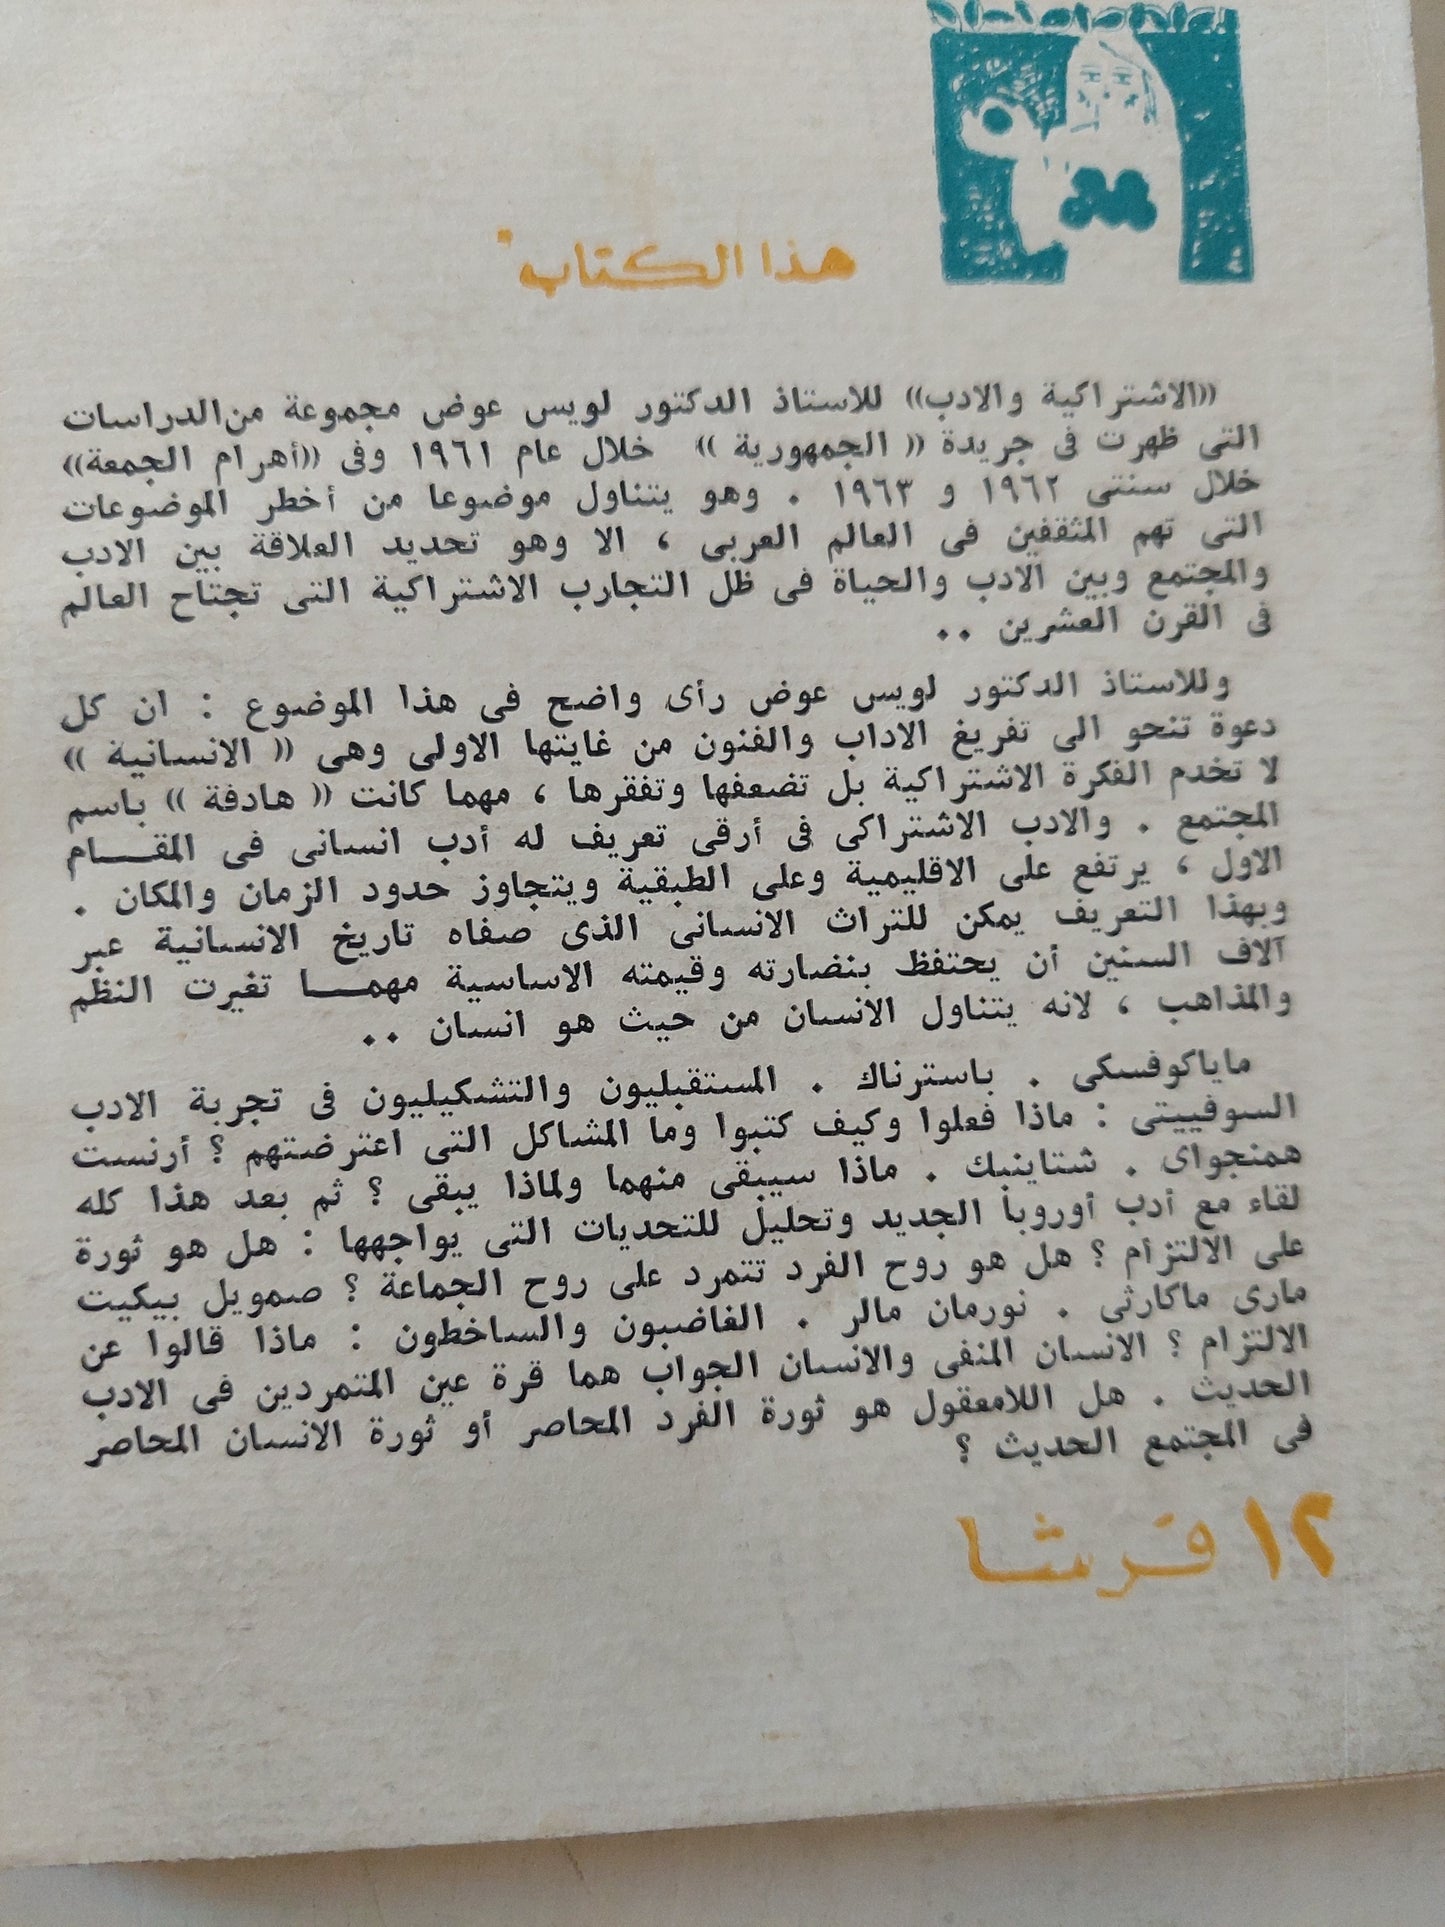 هذا الكتاب
((الاشتراكية والادب)) للاستاذ الدكتور لويس عوض مجموعة من الدراسات
التى ظهرت فى جريدة (( الجمهورية )) خلال عام ١٩٦١ وفى ((أهرام الجمعة))
خلال سنتى ١٩٦٢ و ١٩٦٣ . وهو يتناول موضوعا من أخطر الموضوعات
التى تهم المثقفين فى العالم العربى ، الا وهو تحديد العلاقة بين الادب
والمجتمع وبين الادب والحياة فى ظل التجارب الاشتراكية التى تجتاح العالم
فى القرن العشرين ..
وللاستاذ الدكتور لويس عوض رأى واضح فى هذا الموضوع : ان كل
دعوة تنحو الى تفريغ الاداب والفنون من غايتها الاولى وهى (( الانسانية ))
لا تخدم الفكرة الاشتراكية بل تضعفها وتفقرها ، مهما كانت (( هادفة )) باسم
المجتمع . والادب الاشتراكى فى أرقى تعريف له أدب انسانى فى المقـــام
الاول ، يرتفع على الاقليمية وعلى الطبقية ويتجاوز حدود الزمان والمكان .
وبهذا التعريف يمكن للتراث الانسانى الذى صفاه تاريخ الانسانية عبر
آلاف السنين أن يحتفظ بنضارته وقيمته الاساسية مهمــــا تغيرت النظم
والمذاهب ، لانه يتناول الانسان من حيث هو انسان ..
ماياكوفسكى . باسترناك . المستقبليون والتشكيليون فى تجربة الادب
السوفييتى : ماذا فعلوا وكيف كتبوا وما المشاكل التى اعترضتهم ؟ أرنست
همنجواى . شتاينبك . ماذا سيبقى منهما ولماذا يبقى ؟ ثم بعد هذا كله
لقاء مع أدب أوروبا الجديد وتحليل للتحديات التى يواجهها : هل هو ثورة
على الالتزام ؟ هل هو روح الفرد تتمرد على روح الجماعة ؟ صمويل بيكيت
مارى ماكارثى . نورمان مالر . الغاضبون والساخطون : ماذا قالوا عن
الالتزام ؟ الانسان المنفى والانسان الجواب هما قرة عين المتمردين فى الادب
الحديث . هل اللامعقول هو ثورة الفرد المحاصر أو ثورة الانسان المحاصر
فى المجتمع الحديث ؟
١٢ قرشا